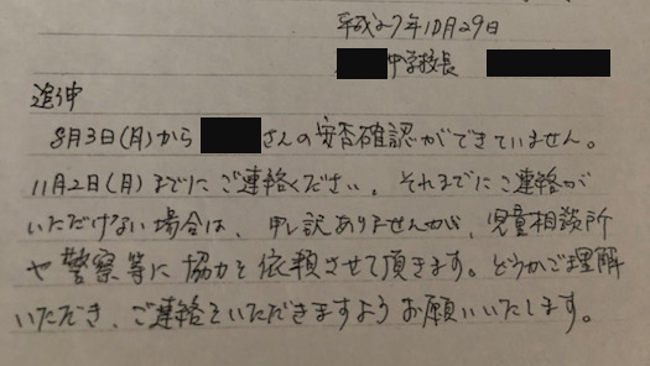 平成27年10月29日
中学校長
追伸
8月3日(月)から さんの安否確認ができていません。
11月2日(月)までにご連絡ください。それまでにご連絡が
いただけない場合は、申し訳ありませんが、児童相談所
や警察等に協力を依頼させて頂きます。どうかご理解
いただき、ご連絡をいただきますようお願いいたします。